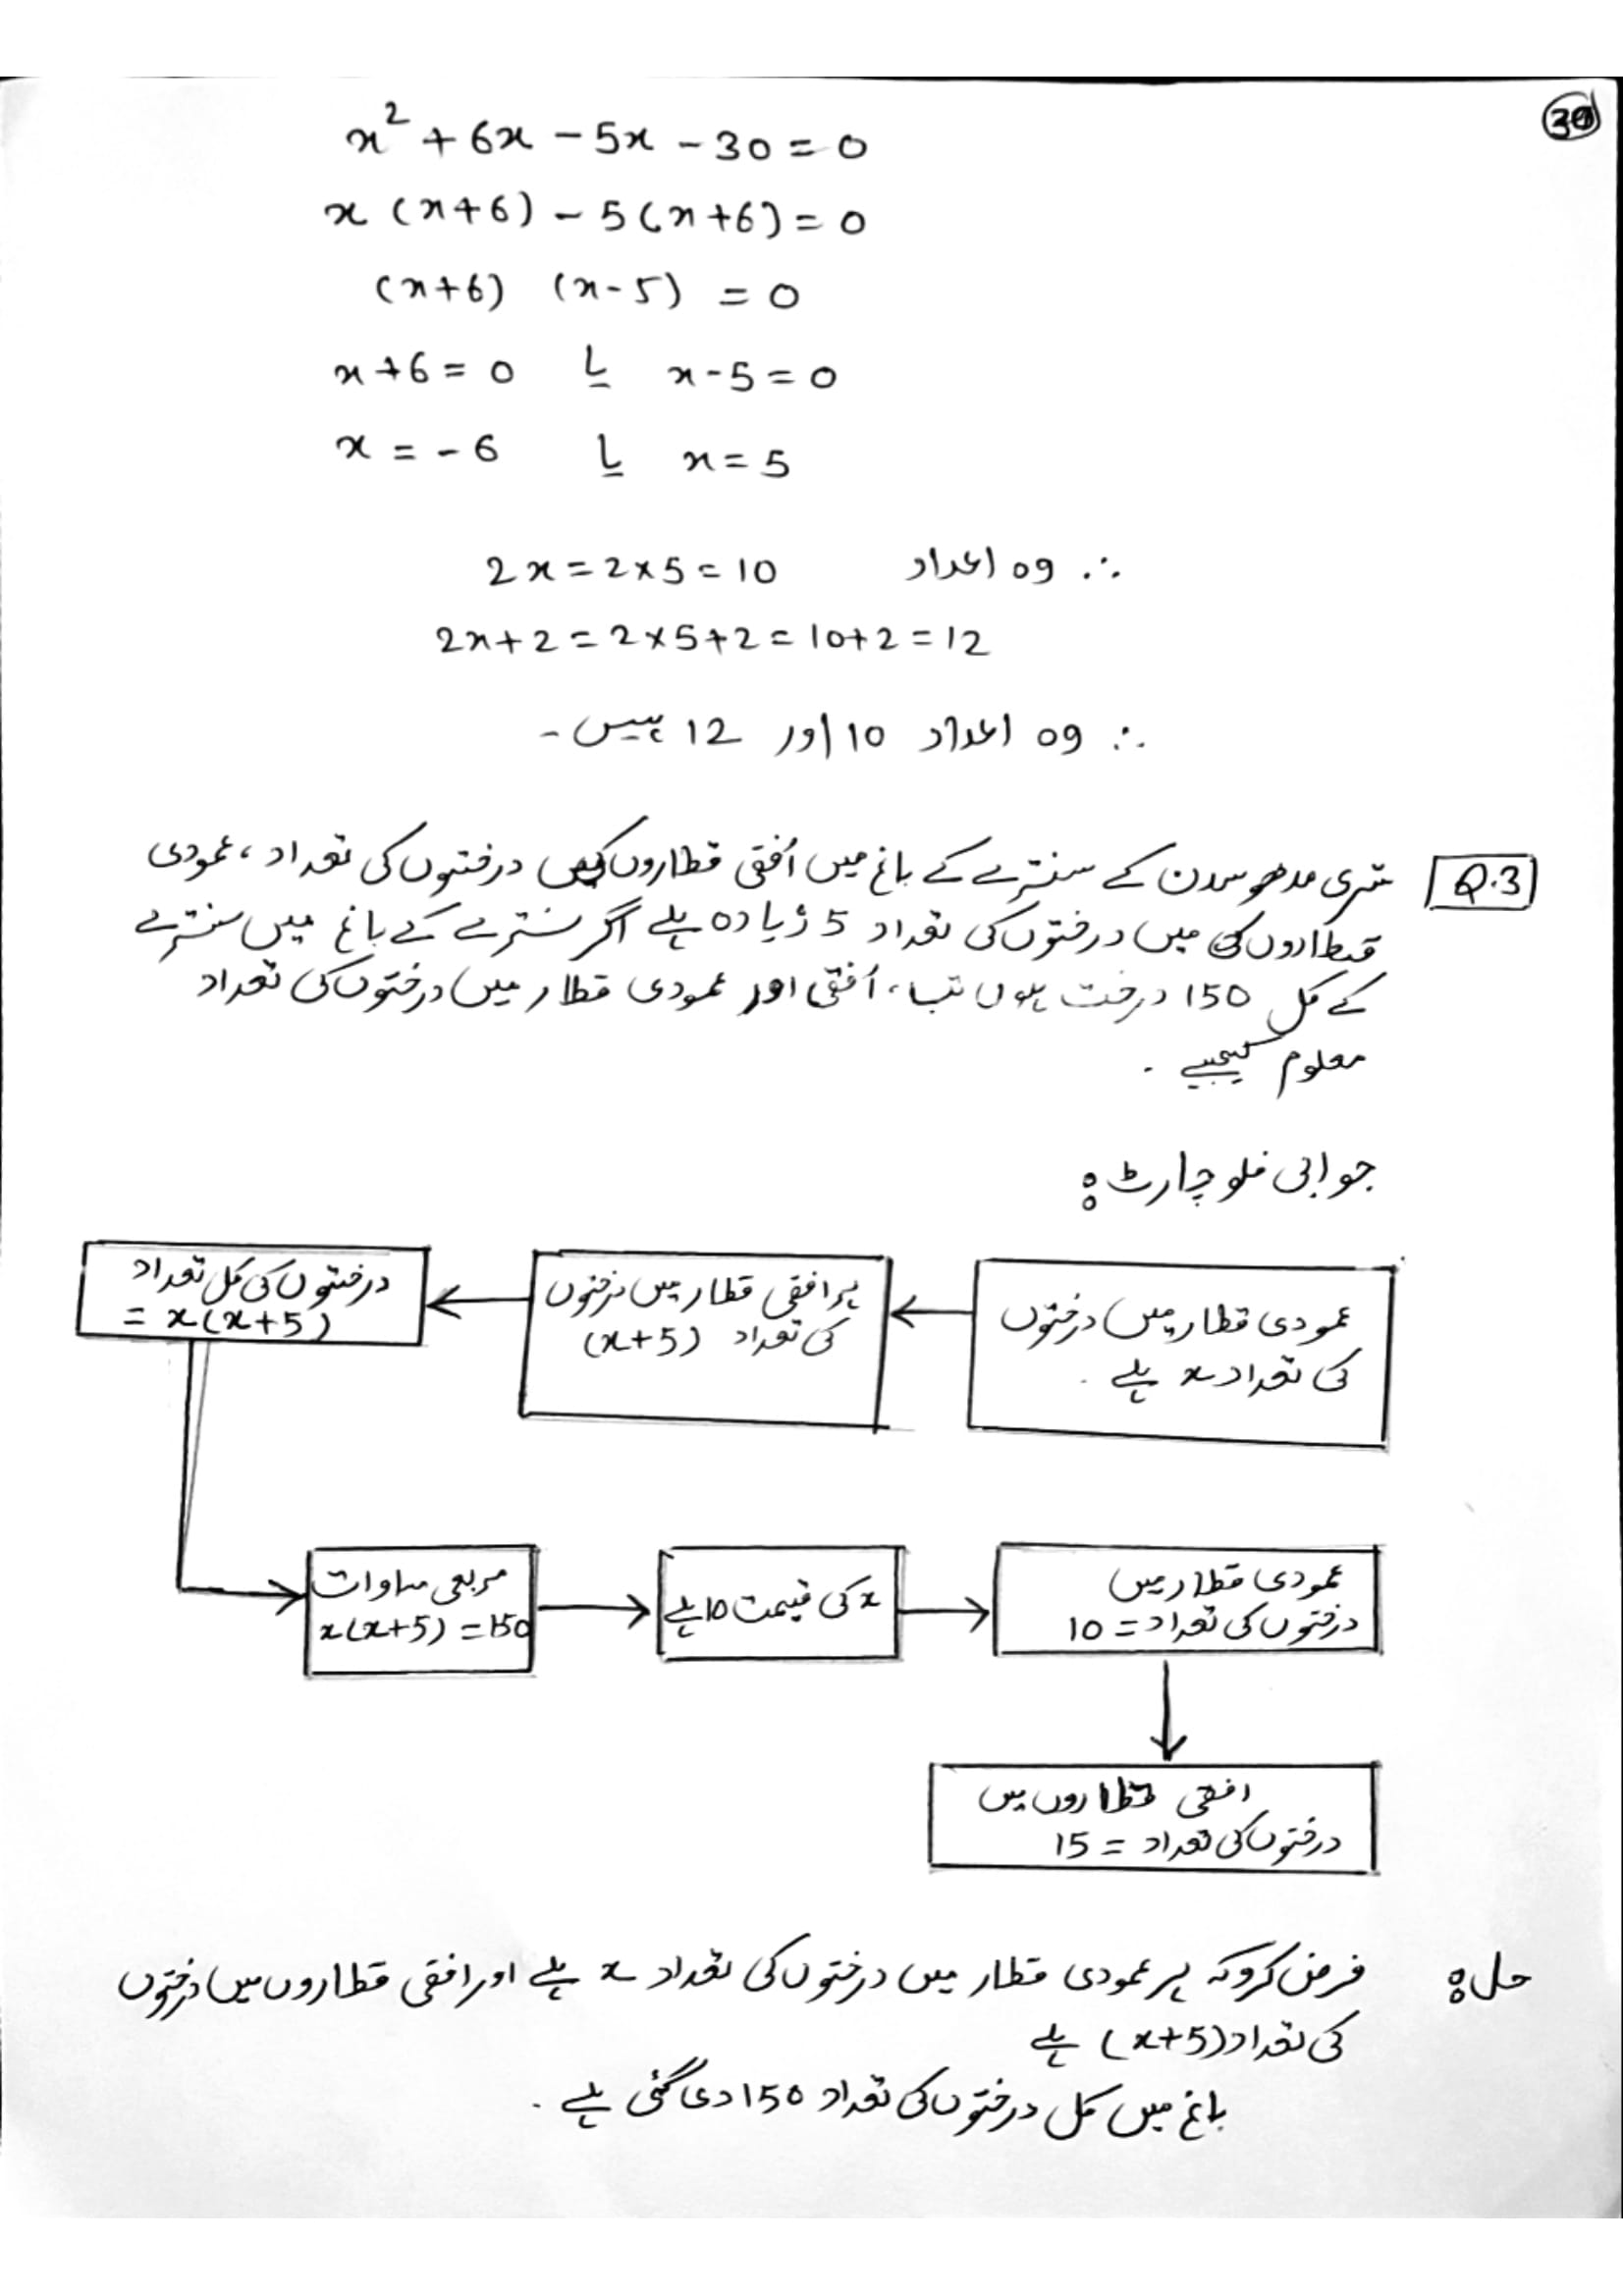 30
x² + 6x - 5x - 30 = 0
x (x+6) - 5(x+6) = 0
(x+6) (x-5) = 0
x+6 = 0 یا x-5 = 0
x = -6 یا x = 5
∴ وہ اعداد 2x = 2×5 = 10
2x+2 = 2×5+2 = 10+2 = 12
∴ وہ اعداد 10 اور 12 ہیں۔
Q.3 شری مدھوسدن کے سنترے کے باغ میں اُفقی قطاروں میں درختوں کی تعداد، عمودی
قطاروں کی میں درختوں کی تعداد 5 زیادہ ہے اگر سنترے کے باغ میں سنترے
کے کل 150 درخت ہوں تب، اُفقی اور عمودی قطار میں درختوں کی تعداد
معلوم کیجیے۔
جوابی فلو چارٹ:
عمودی قطار میں درختوں
کی تعداد x ہے۔
ہر افقی قطار میں درختوں
کی تعداد (x+5)
درختوں کی کل تعداد
= x(x+5)
مربعی مساوات
x(x+5) = 150
x کی قیمت 10 ہے
عمودی قطار میں
درختوں کی تعداد = 10
افقی قطاروں میں
درختوں کی تعداد = 15
حل: فرض کرو کہ ہر عمودی قطار میں درختوں کی تعداد x ہے اور افقی قطاروں میں درختوں
کی تعداد (x+5) ہے
باغ میں کل درختوں کی تعداد 150 دی گئی ہے۔